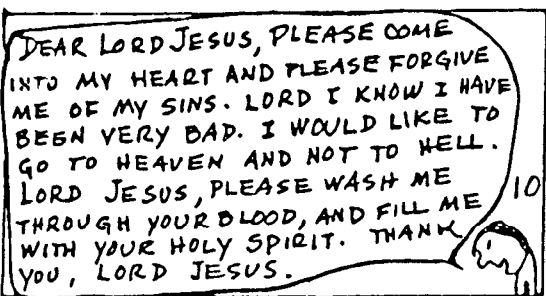 DEAR LORD JESUS, PLEASE COME
INTO MY HEART AND PLEASE FORGIVE
ME OF MY SINS. LORD I KNOW I HAVE
BEEN VERY BAD. I WOULD LIKE TO
GO TO HEAVEN AND NOT TO HELL.
LORD JESUS, PLEASE WASH ME
THROUGH YOUR BLOOD, AND FILL ME
WITH YOUR HOLY SPIRIT. THANK
YOU, LORD JESUS.
10